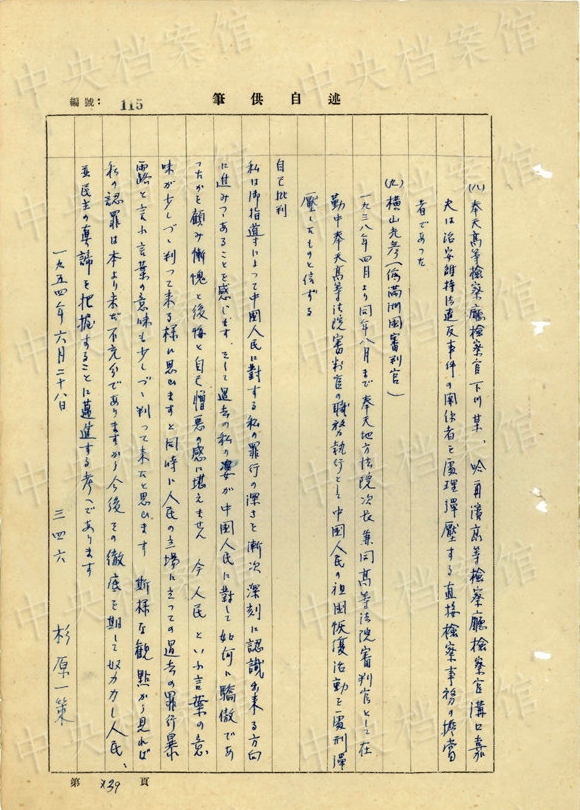 編號：115
筆供自述
(八) 奉天高等檢察廳檢察官下川某、哈爾濱高等檢察廳檢察官溝口嘉
夫は治安維持法違反事件の関係者を處理彈壓する直接檢察事務の擔當
者であった
(九) 横山光彦(偽満洲国審判官)
一九三八年四月より同年八月まで奉天地方法院次長兼同高等法院審判官として在
勤中奉天高等法院審判官の職務執行として中國人民の祖国恢復活動を處刑彈
壓したものと信ずる
自己批判
私は御指導によって中國人民に對する私の罪行の深さを漸次深刻に認識出来る方向
に進みつゝあることを感じます、そして過去の私の姿が中國人民に對して如何に驕傲であ
ったかを顧み慚愧と後悔と自己憎悪の感に堪えません 今人民といふ言葉の意
味が少しづゝ判って来る様に思ひますと同時に人民の立場に立っての過去の罪行暴
露と云ふ言葉の意味も少しづゝ判って来たと思ひます 斯様な観點から見れば
私の認罪は本より未だ不充分でありますから今後その徹底を期して努力し人民
民主の真諦を把握することに邁進する考へであります
一九五四年六月二十八日
三四六 杉原一策
第 39 頁
中央档案馆